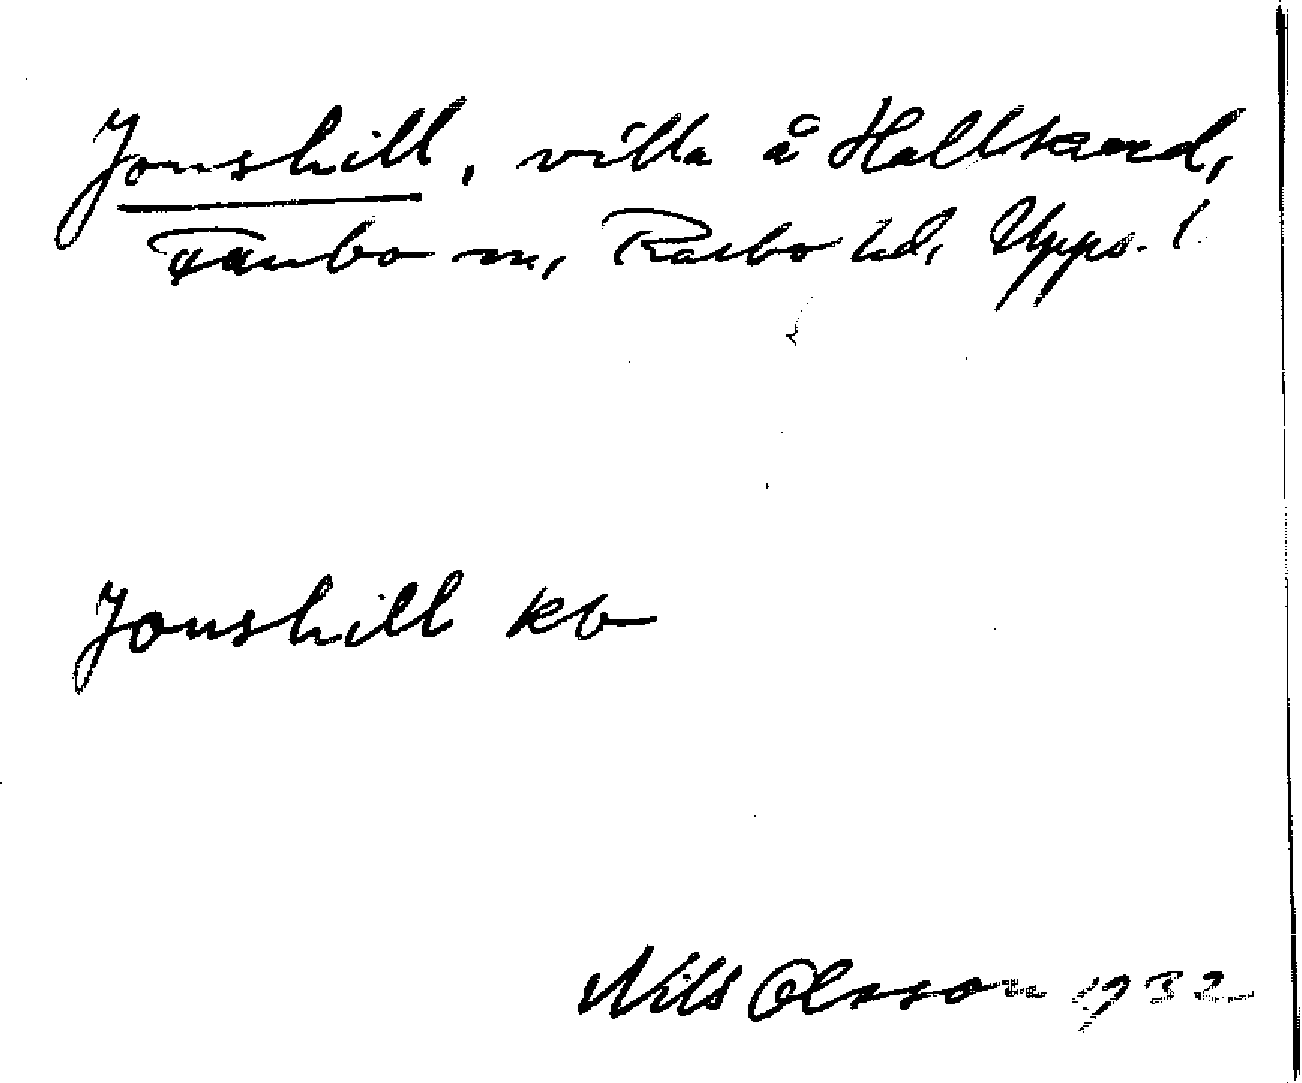 Jonshill, villa å Hallkved,
Funbo sn, Rasbo hd, Upps. l.
Jonshill kb
Nils Olsson 1932